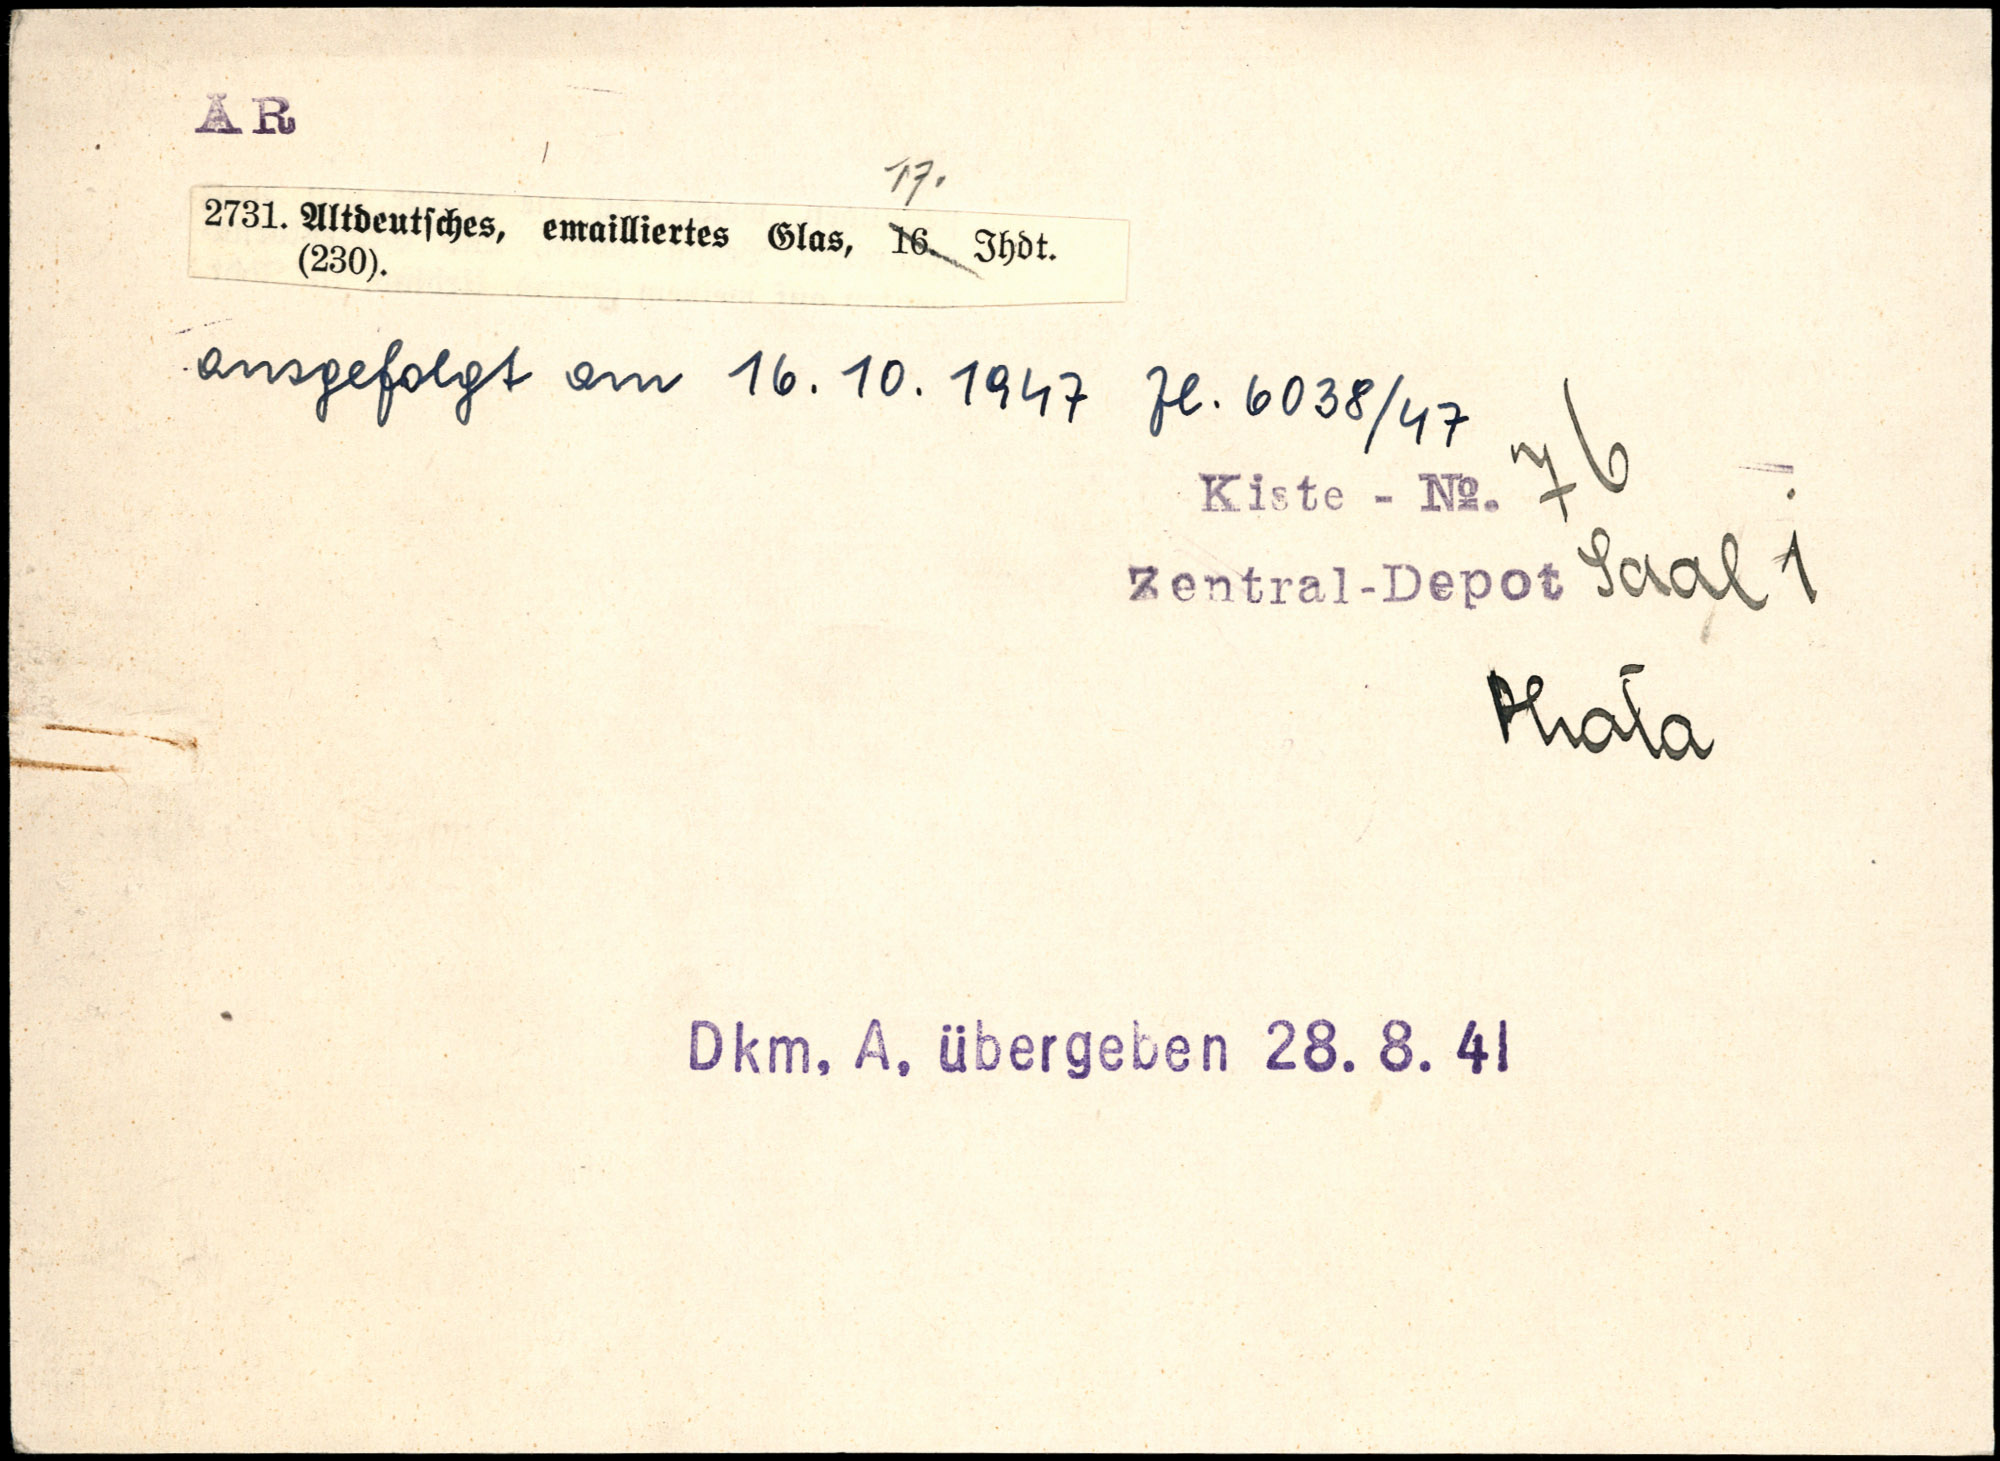 AR
17.
2731. Altdeutſches, emailliertes Glas, 16. Jhdt.
(230).
ausgefolgt am 16. 10. 1947 Zl. 6038/47
Kiste - No. 76
Zentral-Depot Saal 1
Dkm. A. übergeben 28. 8. 41